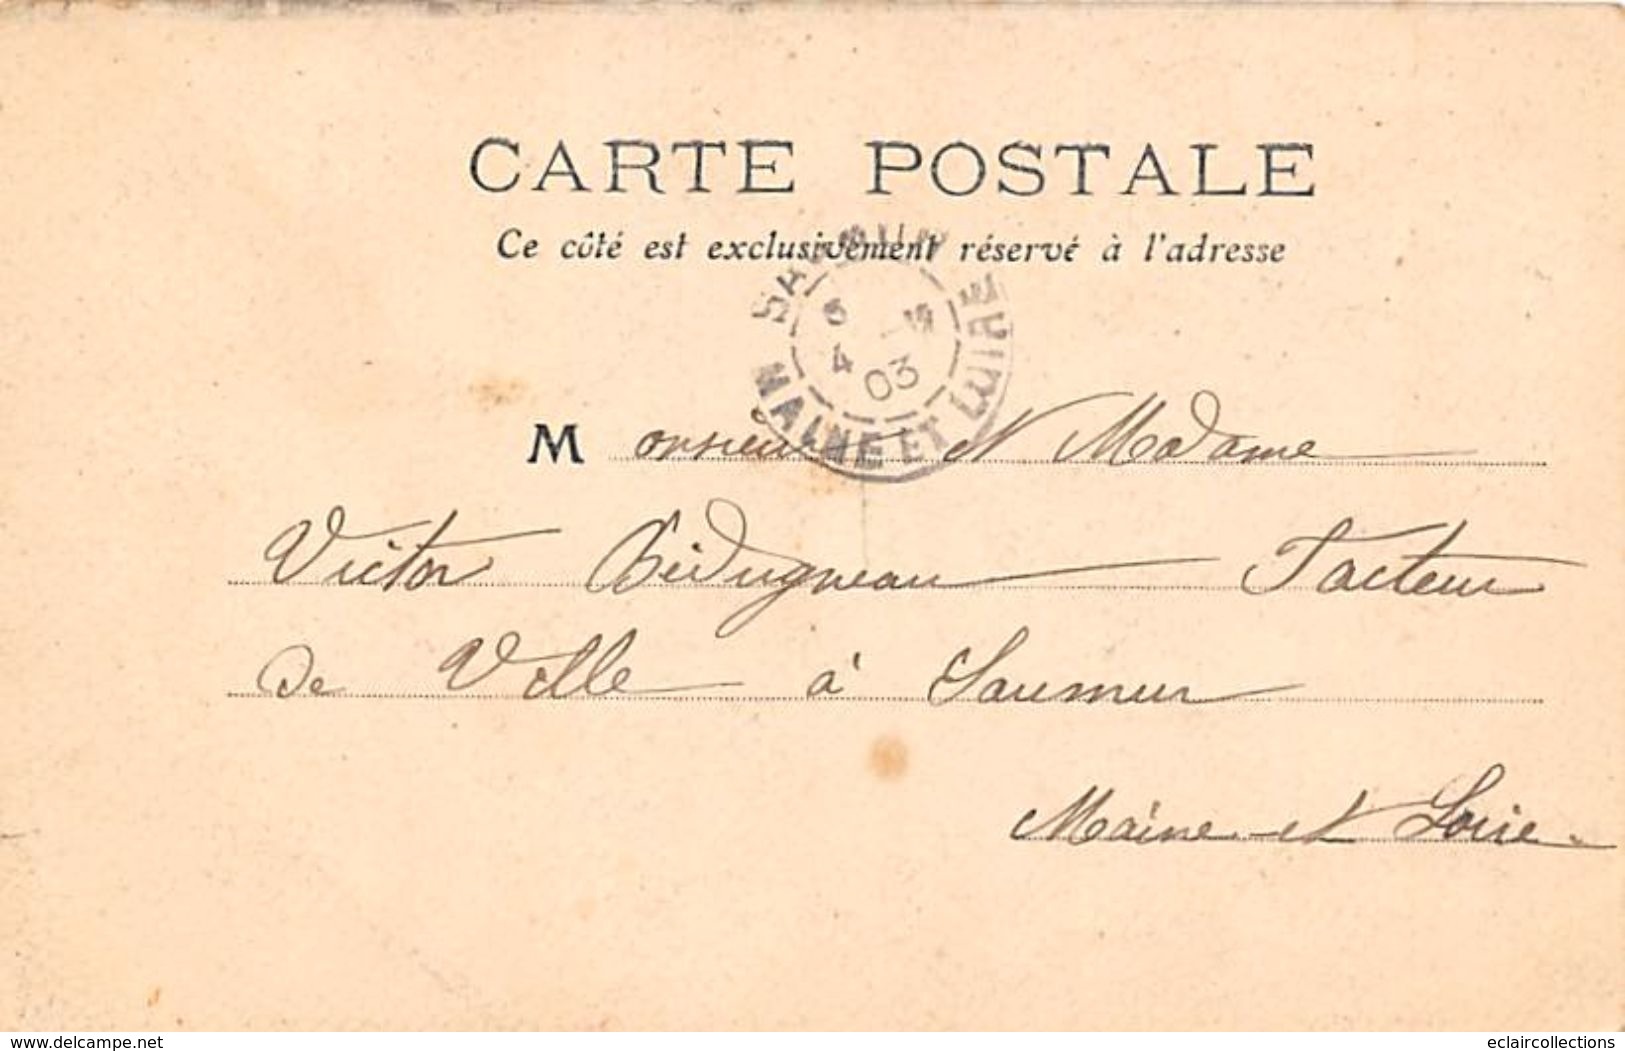 CARTE POSTALE
Ce côté est exclusivement réservé à l'adresse
SAUMUR
4 03
MAINE ET LOIRE
Monsieur et Madame
Victor Bédugneau Facteur
de Ville à Saumur
Maine et Loire
www.delcampe.net eclaircollections